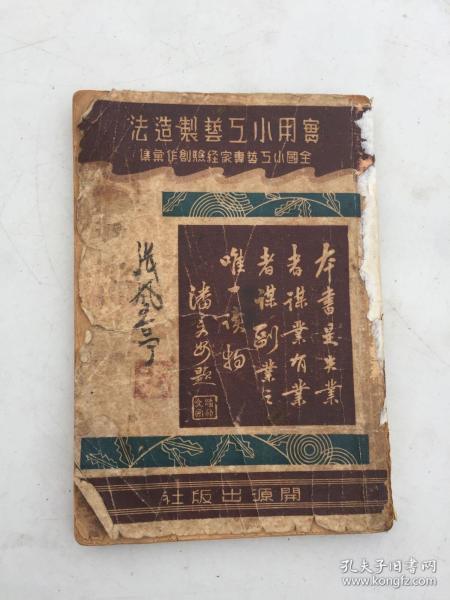 實用小工藝製造法
全國小工藝專家經驗創作彙集
本書是失業
者謀業有業
者謀副業之
唯一讀物
潘文安題
開源出版社
孔夫子旧书网
www.kongfz.com